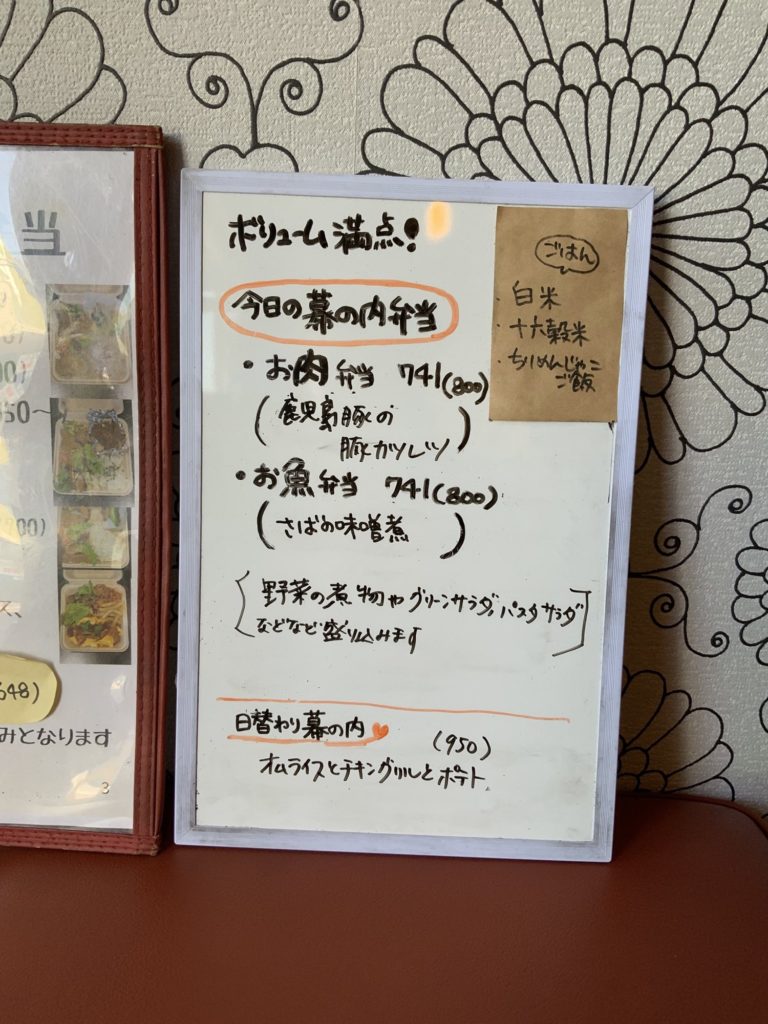 当
50～
00)
648)
みとなります
3
ボリューム満点!
今日の幕の内弁当
・お肉弁当 741(800)
(鹿児島豚の
豚カツレツ)
・お魚弁当 741(800)
(さばの味噌煮)
[野菜の煮物やグリーンサラダ、パスタサラダ
などなど盛り込みます]
日替わり幕の内
(950)
オムライスとチキングリルとポテト
ごはん
・白米
・十六穀米
・ちりめんじゃこ
ご飯